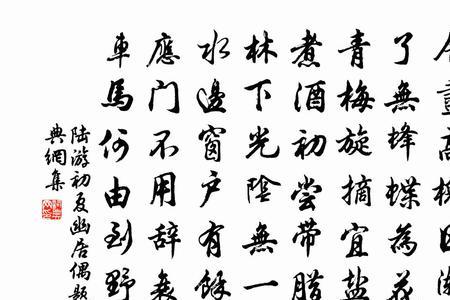 盡高槐日
了無蜂蝶為花
青梅旋摘宜鹽
煮酒初嘗帶臘
林下光陰無一
水邊窗戶有餘
應門不用辭衰
車馬何由到野
陸游初夏幽居偶題
典網集